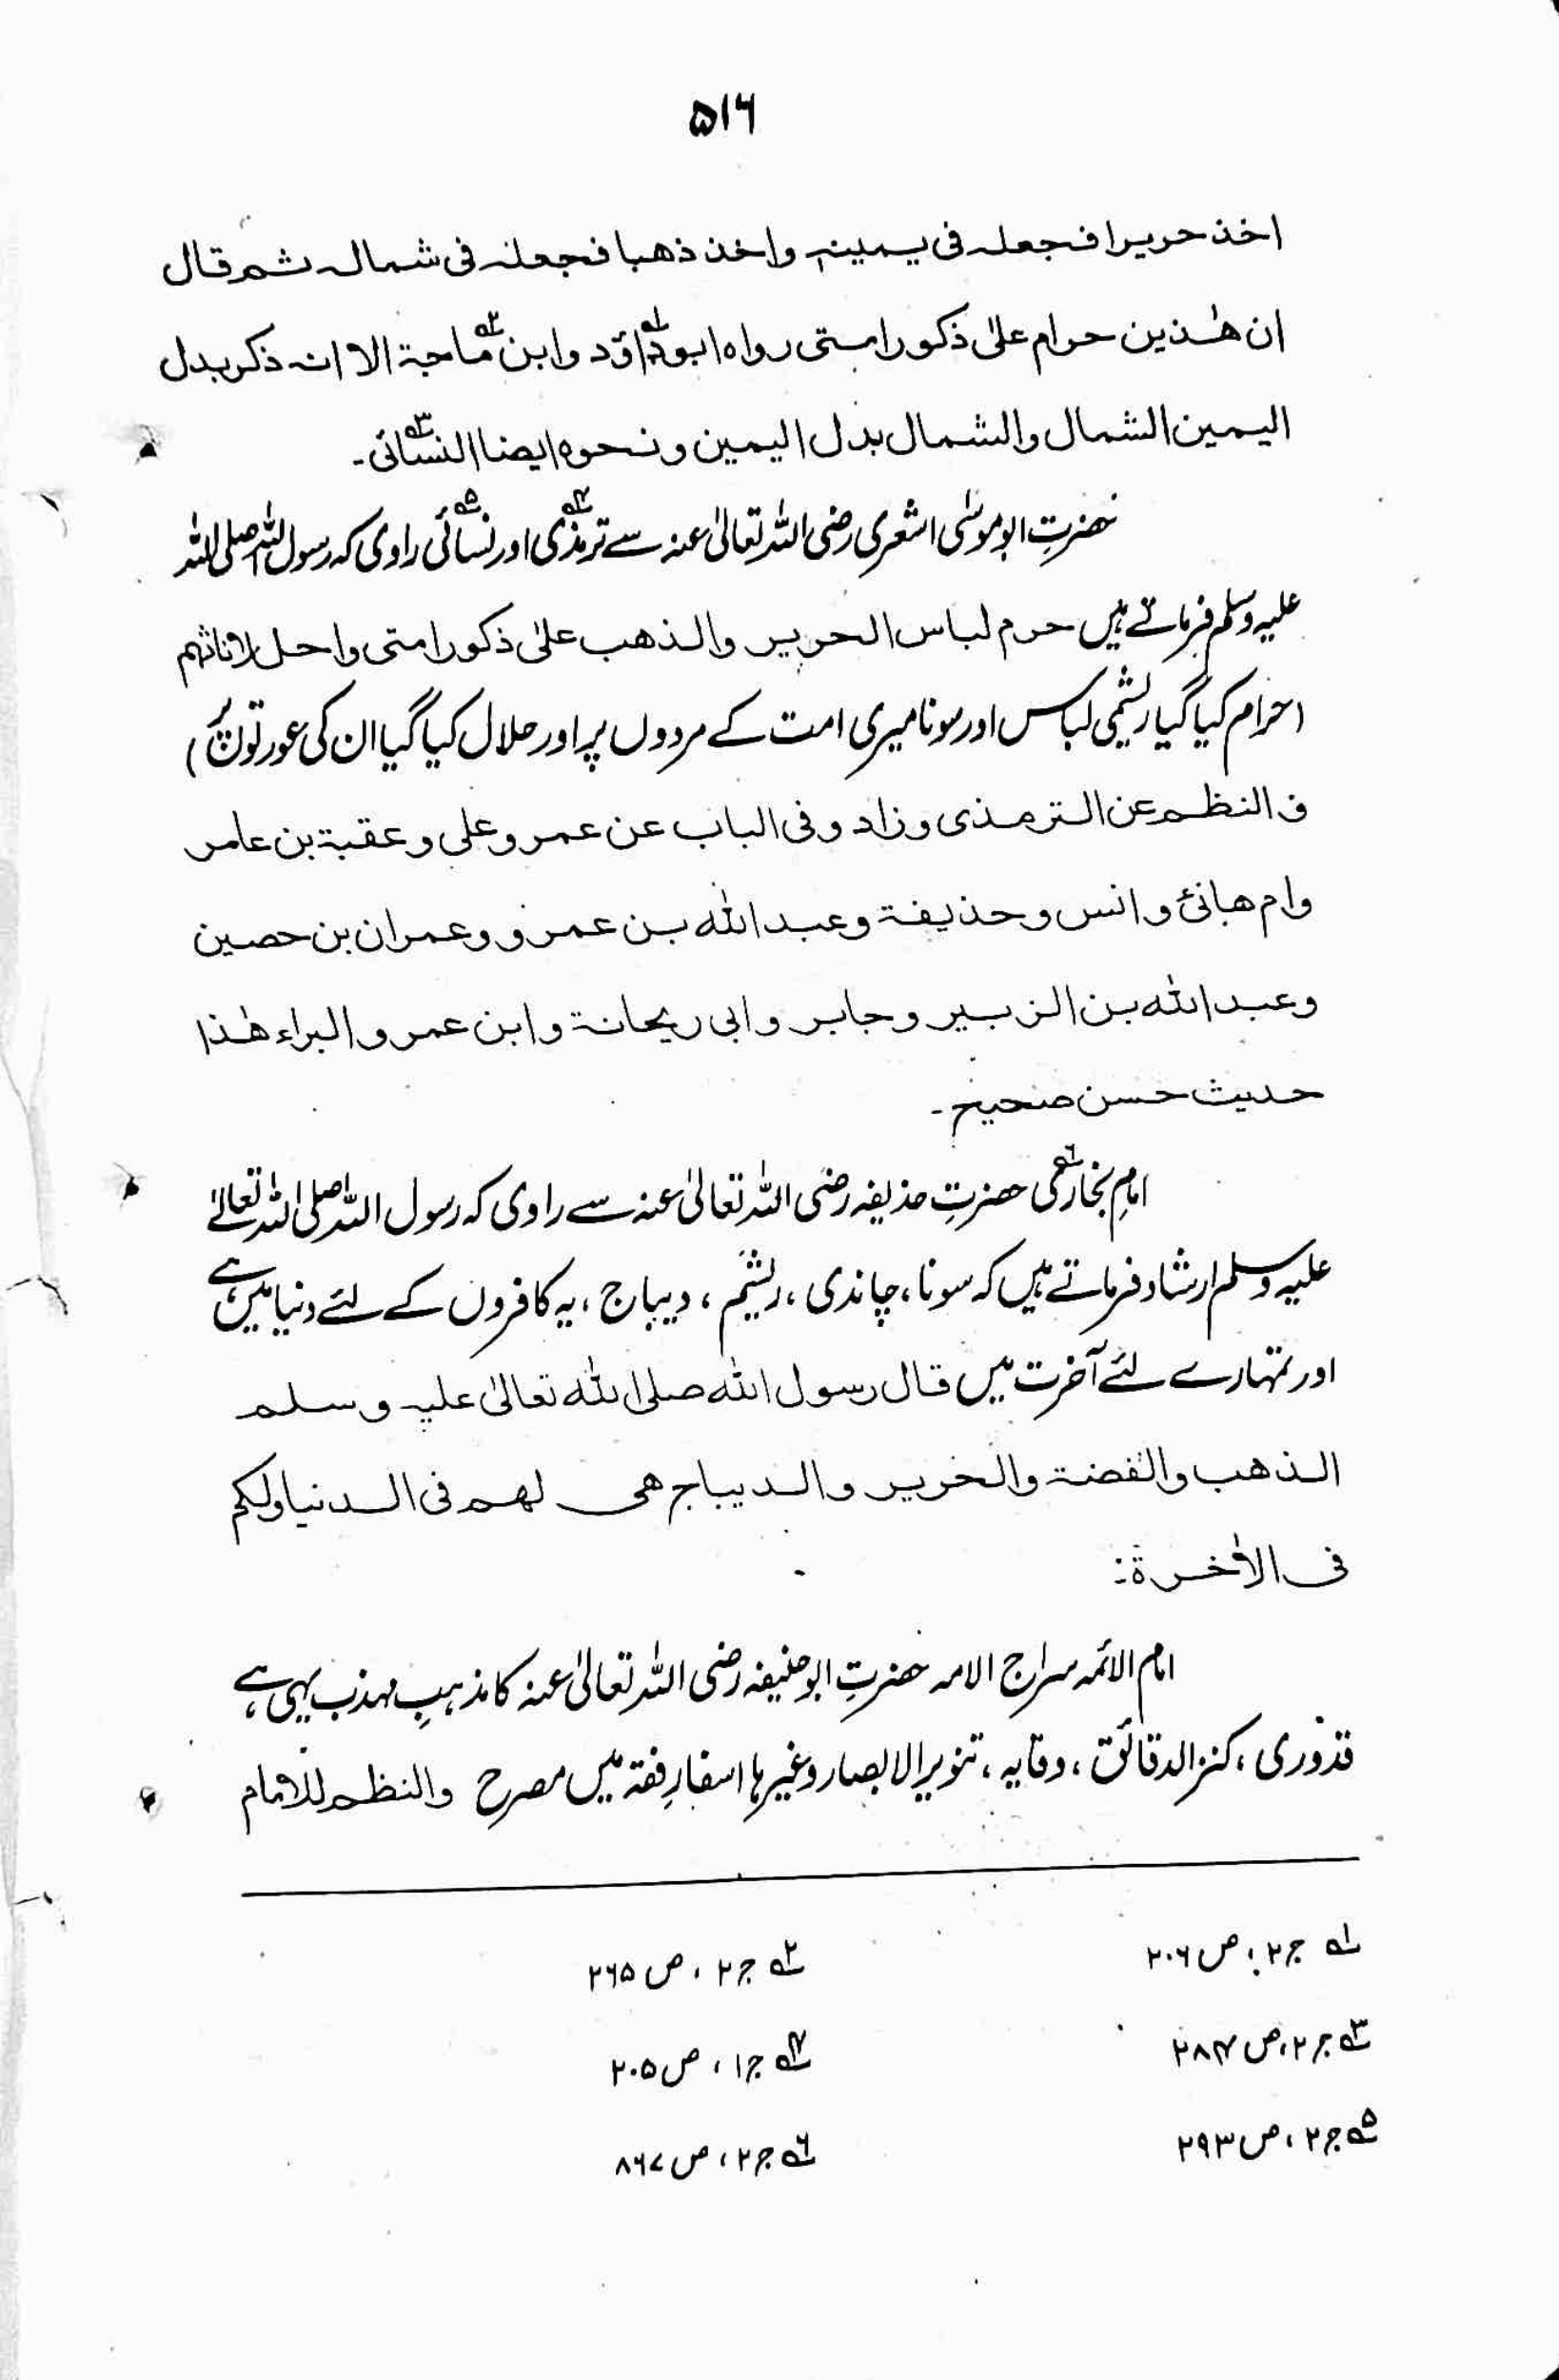 ۵۱۶
اخذ حریرا فجعلہ فی یمینہ واخذ ذھبا فجعلہ فی شمالہ ثم قال
ان ھٰذین حرام علیٰ ذکور امتی رواہ ابو داؤد۱؎ وابن ماجۃ۲؎ الا انہ ذکر بدل
الیمین الشمال والشمال بدل الیمین ونحوہ ایضا النسائی۳؎۔
حضرتِ ابو موسٰی اشعری رضی اللہ تعالیٰ عنہ سے ترمذی۴؎ اور نسائی۵؎ راوی کہ رسول اللہ صلی اللہ
علیہ وسلم فرماتے ہیں حرم لباس الحریر والذھب علیٰ ذکور امتی واحل لاناثھم
(حرام کیا گیا ریشمی لباس اور سونا میری امت کے مردوں پر اور حلال کیا گیا ان کی عورتوں پر)
و النظم عن الترمذی وزاد وفی الباب عن عمر وعلی وعقبۃ بن عامر
وام ھانئ وانس وحذیفۃ وعبد اللہ بن عمرو وعمران بن حصین
وعبد اللہ بن الزبیر وجابر وابی ریحانۃ وابن عمر والبراء ھٰذا
حدیث حسن صحیح۔
امامِ بخاری۶؎ حضرتِ حذیفہ رضی اللہ تعالیٰ عنہ سے راوی کہ رسول اللہ صلی اللہ تعالےٰ
علیہ وسلم ارشاد فرماتے ہیں کہ سونا، چاندی، ریشم، دیباج، یہ کافروں کے لئے دنیا میں ہے
اور تمہارے لئے آخرت میں قال رسول اللہ صلی اللہ تعالیٰ علیہ وسلم
الذھب والفضۃ والحریر والدیباج ھی لھم فی الدنیا ولکم
فی الاٰخرۃ:
امام الائمہ سراج الامہ حضرتِ ابو حنیفہ رضی اللہ تعالیٰ عنہ کا مذہبِ مہذب یہی ہے
قدوری، کنز الدقائق، وقایہ، تنویر الابصار وغیرہا اسفارِ فقہ میں مصرح والنظم للامام
۱؎ ج۲، ص۲۰۶
۲؎ ج۲، ص۲۶۵
۳؎ ج۲، ص۲۸۴
۴؎ ج۱، ص۲۰۵
۵؎ ج۲، ص۲۹۳
۶؎ ج۲، ص۸۶۷